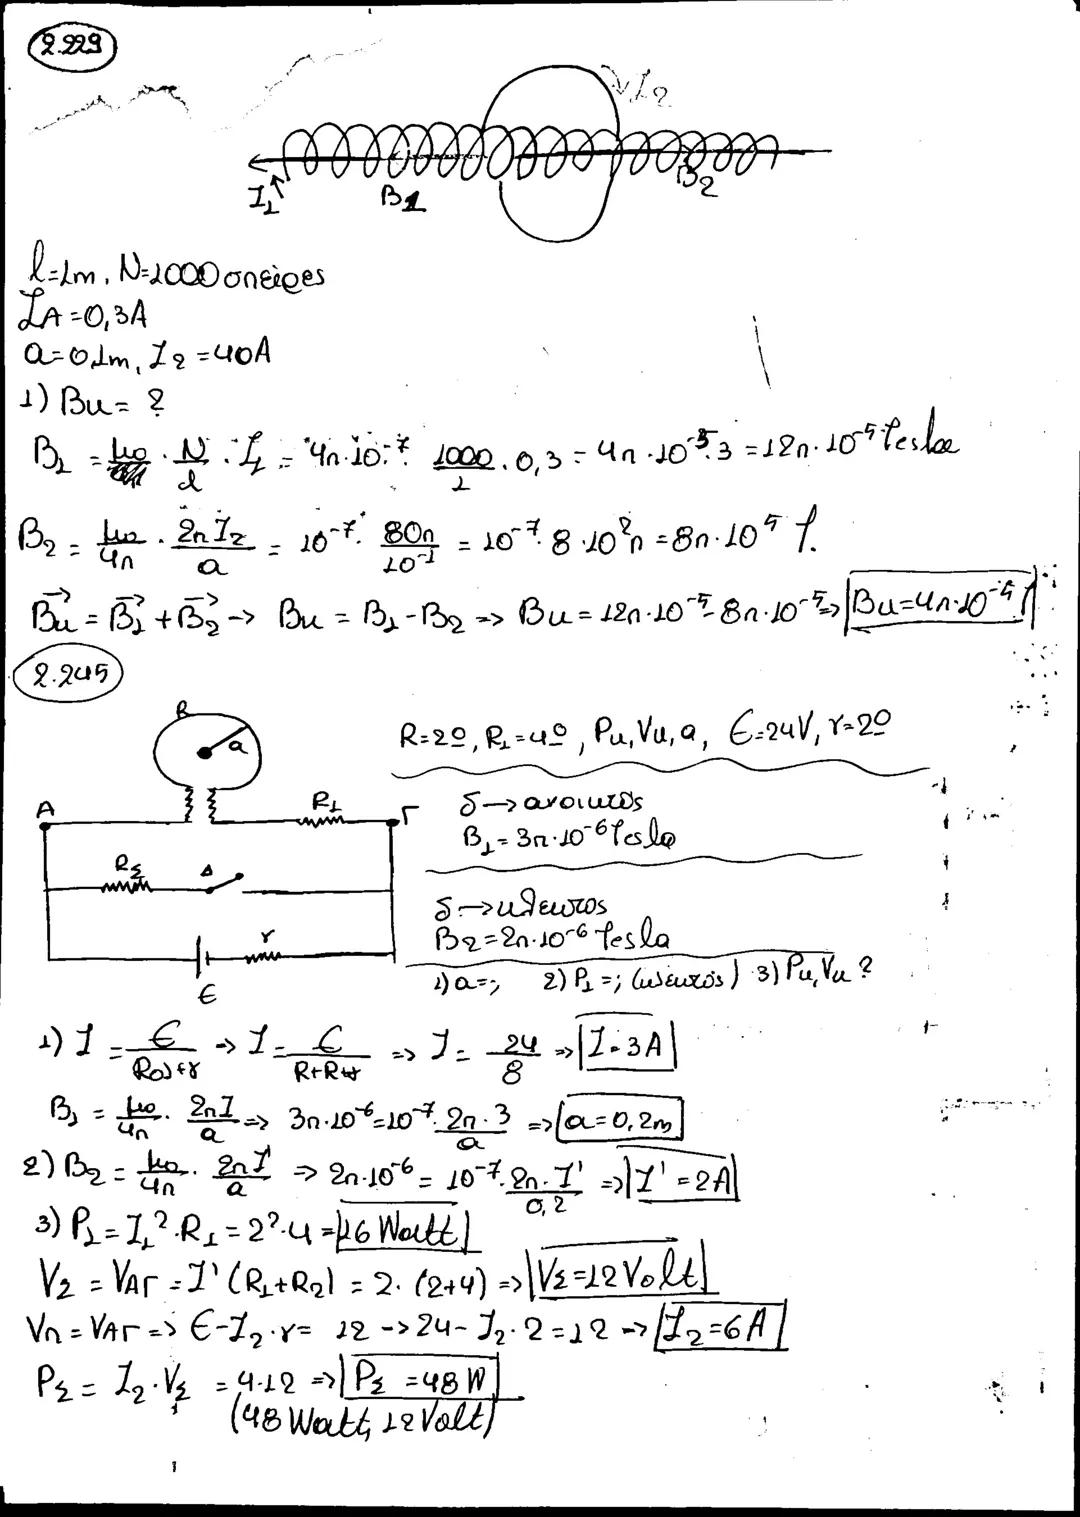 2.229
I2
I1 B1 B2
l=1m, N=1000 σπείρες
IA=0,3A
a=0,1m, I2=40A
1) Bκ= ?
B1 = μ0 · N/l · I1 = 4π·10^-7 · 1000/1 · 0,3 = 4π·10^-5·3 = 12π·10^-5 Tesla
B2 = μ0/4π · 2πI2/a = 10^-7 · 80π/10^-1 = 10^-7·8·10^2π = 8π·10^5 T.
Bκ = B1 + B2 -> Bκ = B1-B2 => Bκ = 12π·10^-5-8π·10^-5 => Bκ=4π·10^-5 T
2.245
R
a
A R1 Γ
RΣ Δ
r
ε
R=2Ω, R1=4Ω, Pκ, Vκ, a, ε=24V, r=2Ω
δ -> ανοικτός
B1=3π·10^-6 Tesla
δ -> κλειστός
B2=2π·10^-6 Tesla
1) a=; 2) P1=; (κλειστός) 3) Pκ, Vκ ?
1) I = ε/Rολ+r => I = ε/R+R1+r => I = 24/8 => I=3A
B1 = μ0/4π · 2πI/a => 3π·10^-6=10^-7·2π·3/a => a=0,2m
2) B2 = μ0/4π · 2πI'/a => 2π·10^-6 = 10^-7·2π·I'/0,2 => I'=2A
3) P1=I1^2·R1=2^2·4=16 Watt
V2 = VAΓ = I'(R1+R2) = 2·(2+4) => VΣ=12Volt
Vπ=VAΓ => ε-I2·r= 12 -> 24-I2·2=12 -> I2=6A
PΣ = I2·VΣ = 4·12 => PΣ=48W
(48 Watt, 12Volt)